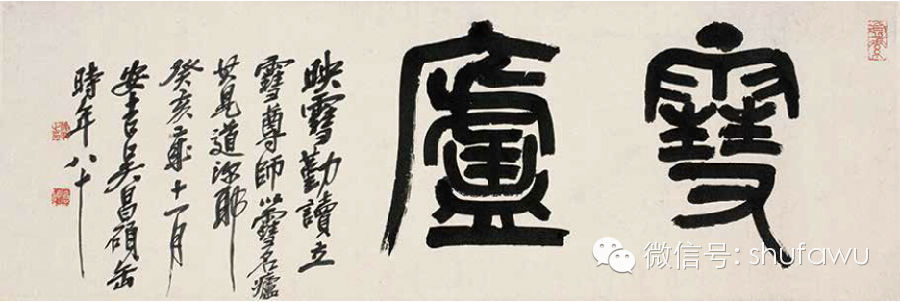 雪廬
映雪勤讀立
雪尊師以雪名廬
其見道深耶
癸亥歲十一月
安吉吳昌碩缶
時年八十
微信号: shufawu